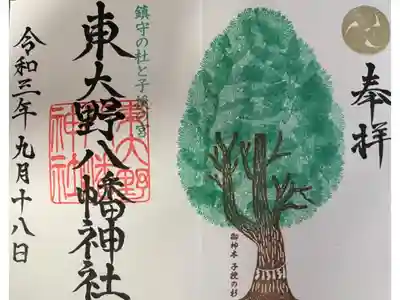 奉拝
御神木 子授の杉
鎮守の杜と子授の宮
東大野八幡神社
令和三年 九月十八日